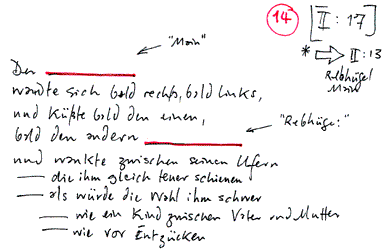 14 [II : 17]
* ⇒ II : 13
Rebhügel
Main
"Main"
Der
wandte sich bald rechts, bald links,
und küßte bald den einen,
bald den andern
"Rebhügel"
und wankte zwischen seinen Ufern
— die ihm gleich teuer schienen
— als würde die Wahl ihm schwer
— wie ein Kind zwischen Vater und Mutter
— wie vor Entzücken